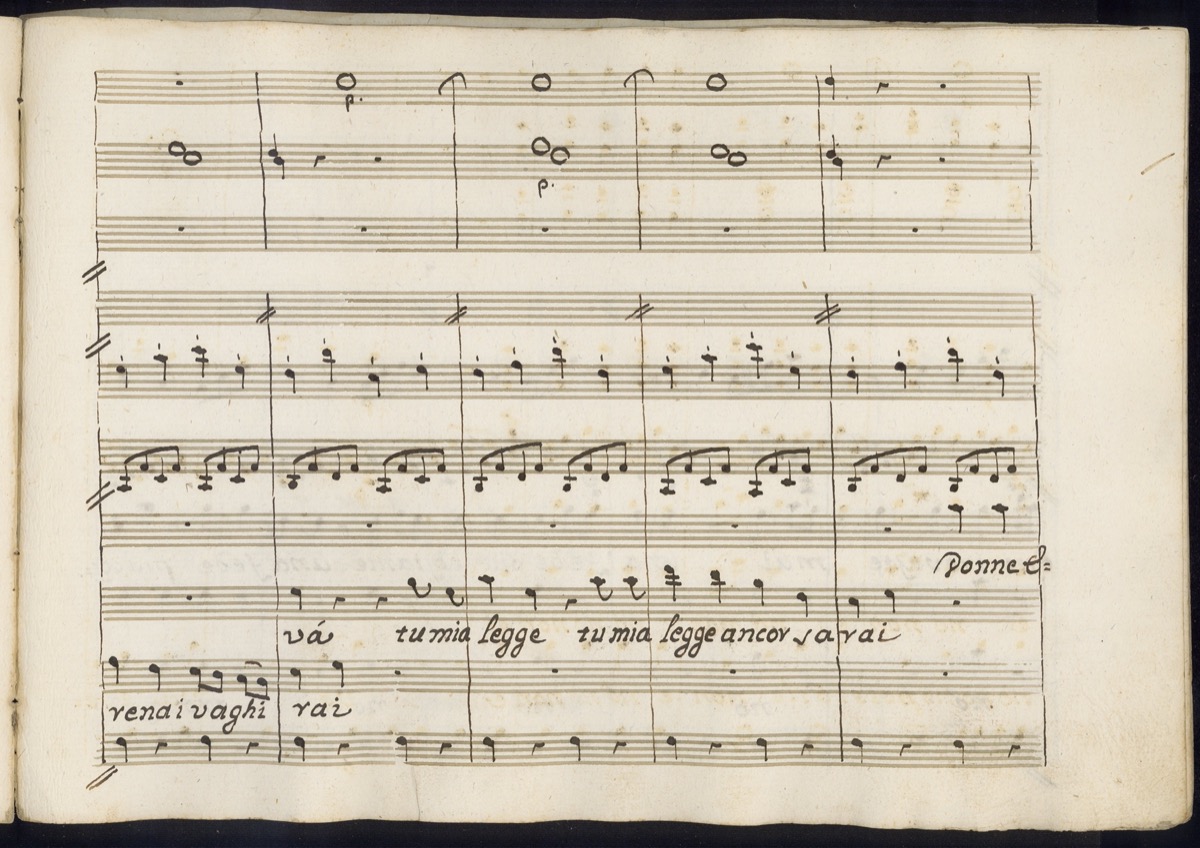 p.
p.
Donne &=
vá tu mia legge tu mia legge ancor sarai
renai vaghi rai